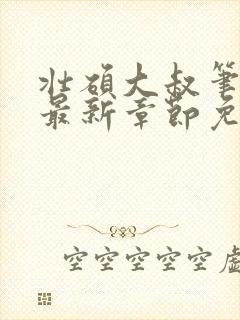 壮硕大叔笔
最新章节免
空空空空空虚